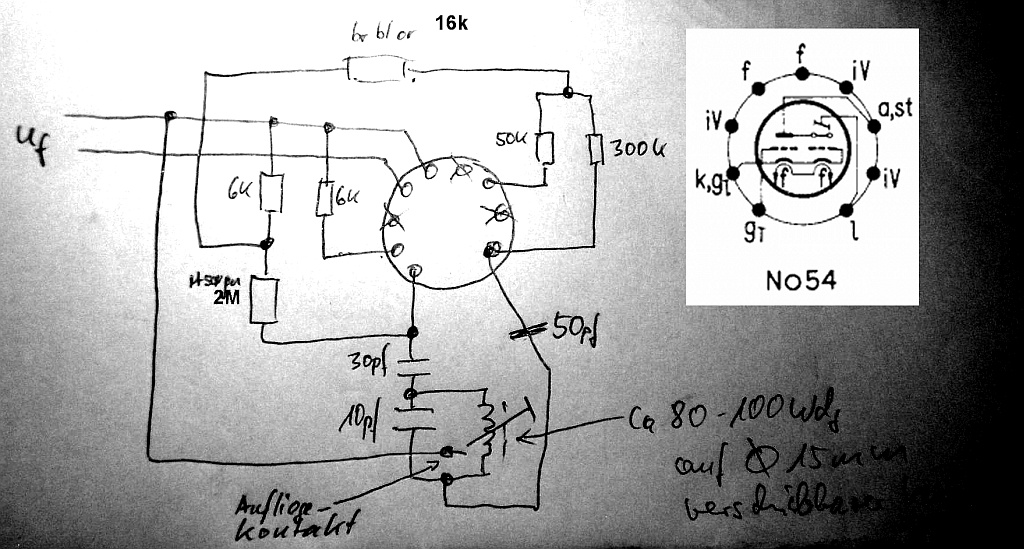 br bl or 16k
Uf
50K
300K
6K
6K
2M
30pf
50pf
10pf
Ca 80-100 Wdg
auf Ø 15mm
verschiebbar
Auflige-
kontakt
f
f
iV
iV
a,st
k,gT
iV
gT
l
f
f
No54